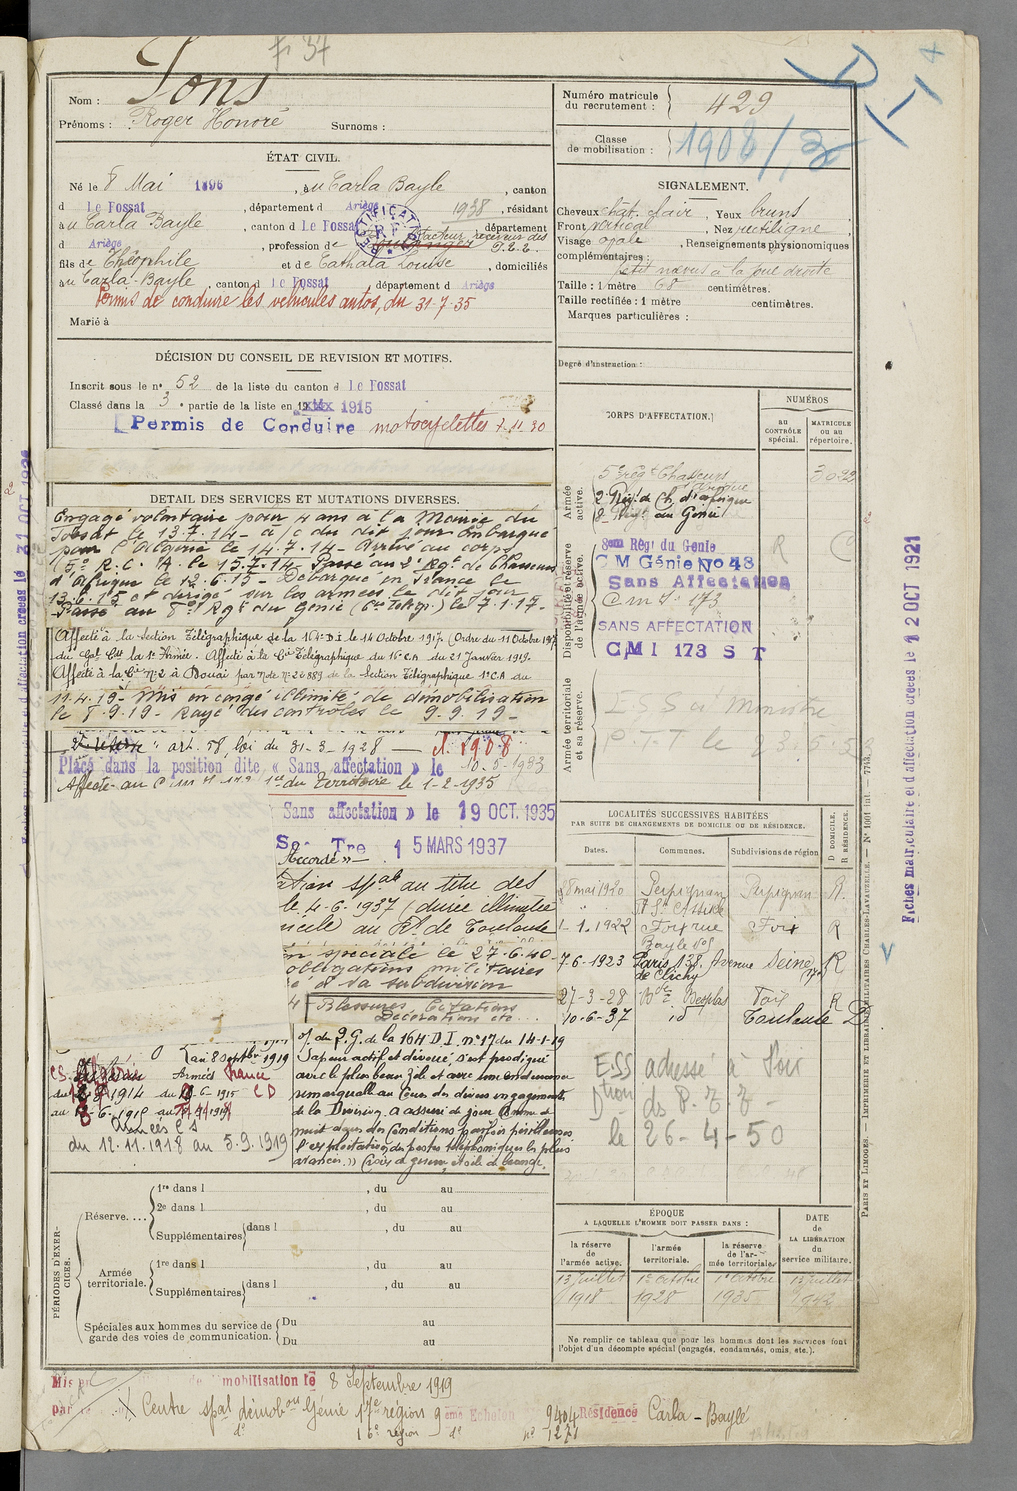 F 37
Pons
Nom :
Prénoms : Roger Honoré Surnoms :
ÉTAT CIVIL.
Né le 8 Mai 1896, à u Carla Bayle, canton
d Le Fossat, département d Ariège 1938, résidant
à u Carla Bayle, canton d Le Fossat, département
d Ariège, profession de facteur receveur des P.T.T.
fils de Théophile et de Cathala Louise, domiciliés
à u Carla-Bayle, canton d Le Fossat département d Ariège
Permis de conduire les véhicules autos, du 31-7-35
Marié à
DÉCISION DU CONSEIL DE REVISION ET MOTIFS.
Inscrit sous le n° 52 de la liste du canton d Le Fossat
Classé dans la 3e partie de la liste en 1915
Permis de Conduire motocyclettes 7-11-30
DETAIL DES SERVICES ET MUTATIONS DIVERSES.
Engagé volontaire pour 4 ans à la Mairie du
Fossat le 13.7.14 - à c du dit jour Embarqué
pour l'Algérie le 14.7.14 - Arrivé au corps
(5e R.C.A. le 15.7.14. Passé au 2e Rgt de Chasseurs
d'Afrique le 12.6.15 - Débarqué en France le
13.6.15 et dirigé sur les armées le dit jour
Passé au 8e Rgt du Génie (Cie Télégr.) le 7.1.17-
Affecté à la Section Télégraphique de la 164e D.I. le 14 Octobre 1917. (Ordre du 11 Octobre 1917
du Gal Ct la 1e Armée. Affecté à la Cie Télégraphique du 16e C.A du 21 Janvier 1919.
Affecté à la Cie n°2 à Douai par Note N° 22889 de la Section Télégraphique 1e C.A du
11.4.19 - Mis en congé illimité de démobilisation
le 8.9.19 - Rayé des contrôles le 9.9.19 -
art. 58 loi du 31-3-1928 cl. 1908
Placé dans la position dite « Sans affectation » le 10-5-1933
Affecté au du Territoire le 1-2-1935
Sans affectation » le 19 OCT. 1935
15 MARS 1937
Accordé »
ation spale au titre des
le 4-6-1937 (durée illimitée
micile au Rt de Toulouse
n spéciale le 27-6-40-
obligations militaires
e d sa subdivision
Blessures Citations
Décorations etc...
O/ du Q.G. de la 164 D.I. n°17 du 14-1-19
Sapeur actif et dévoué s'est prodigué
avec le plus beau zèle et avec une endurance
remarquable au Cours des divers engagements
de la Division. A assuré de jour comme de
nuit dans des conditions parfois périlleuses
l'exploitation des postes téléphoniques les plus
avancés. » Croix de guerre, étoile de bronze.
au 8 Septbre 1919
Armées France
1914 du -6-1915 CD
au -6-1915 au
Armées CS
du 12.11.1918 au 5.9.1919
PÉRIODES D'EXERCICES.
Réserve....
1re dans l , du au
2e dans l , du au
Supplémentaires dans l , du au
Armée territoriale.
1re dans l , du au
Supplémentaires dans l , du au
Spéciales aux hommes du service de garde des voies de communication.
Du au
Du au
Numéro matricule du recrutement : 429
Classe de mobilisation : 1908/
D
SIGNALEMENT.
Cheveux chat. clair, Yeux bruns
Front vertical, Nez rectiligne
Visage ovale, Renseignements physionomiques
complémentaires :
petit nævus à la joue droite
Taille : 1 mètre 68 centimètres.
Taille rectifiée : 1 mètre centimètres.
Marques particulières :
Degré d'instruction :
CORPS D'AFFECTATION.
NUMÉROS
AU CONTRÔLE spécial.
MATRICULE OU AU répertoire.
Armée active.
5e régt Chasseurs d'Afrique
2e Régt de Ch. d'Afrique
8e Régt du Génie
Disponibilité et réserve de l'armée active.
8em Régt du Genie R
C M Génie No 48
Sans Affectation
SANS AFFECTATION
CMI 173 S T
Armée territoriale et sa réserve.
ESS à Ministre
P.T.T le
LOCALITÉS SUCCESSIVES HABITÉES
PAR SUITE DE CHANGEMENTS DE DOMICILE OU DE RÉSIDENCE.
Dates. Communes. Subdivisions de région D DOMICILE. R RÉSIDENCE.
18 mai 1920 Perpignan Perpignan R.
1-1.1922 Foix rue Bayle Foix R
7-6-1923 Paris 138, Avenue de Clichy Seine R
27-3-28 Foix R
10-6-37 id Toulouse D
ESS adressé à Foix
Dtion ds P.T.T-
le 26-4-50
ÉPOQUE
A LAQUELLE L'HOMME DOIT PASSER DANS :
la réserve de l'armée active. l'armée territoriale. la réserve de l'armée territoriale.
DATE DE LA LIBÉRATION du service militaire.
13 Juillet 1918 1er Octobre 1928 1er Octobre 1935 13 Juillet 1942
Ne remplir ce tableau que pour les hommes dont les services font l'objet d'un décompte spécial (engagés, condamnés, omis, etc.).
PARIS ET LIMOGES. — IMPRIMERIE ET LIBRAIRIE MILITAIRES CHARLES-LAVAUZELLE. — N° 1001 int. — 7743.
Fiches matriculaire et d'affectation créées le 12 OCT 1921
Mis en mobilisation le 8 Septembre 1919
par Centre spal démobon Génie 17e région 9ème Echelon 9404 Résidence Carla-Bayle
de 16e région de n° 1271